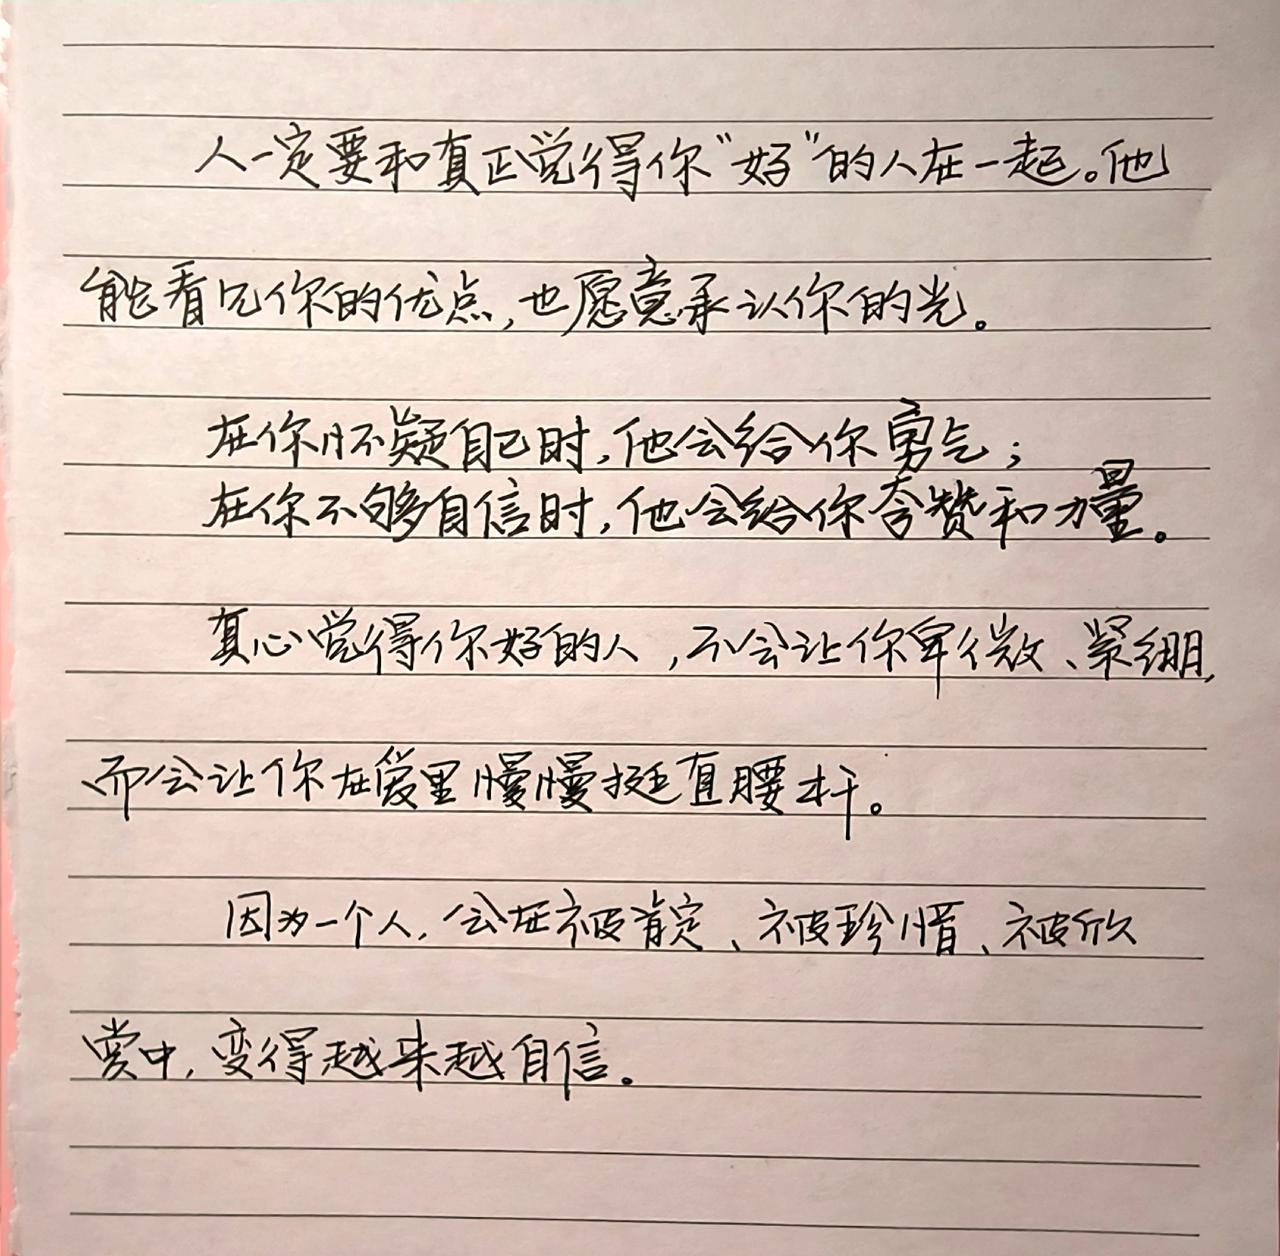 人一定要和真正觉得你“好”的人在一起。他
能看见你的优点,也愿意承认你的光。
在你怀疑自己时,他会给你勇气;
在你不够自信时,他会给你夸赞和力量。
真心觉得你好的人,不会让你卑微、紧绷,
而会让你在爱里慢慢挺直腰杆。
因为一个人,会在被肯定、被珍惜、被欣
赏中,变得越来越自信。